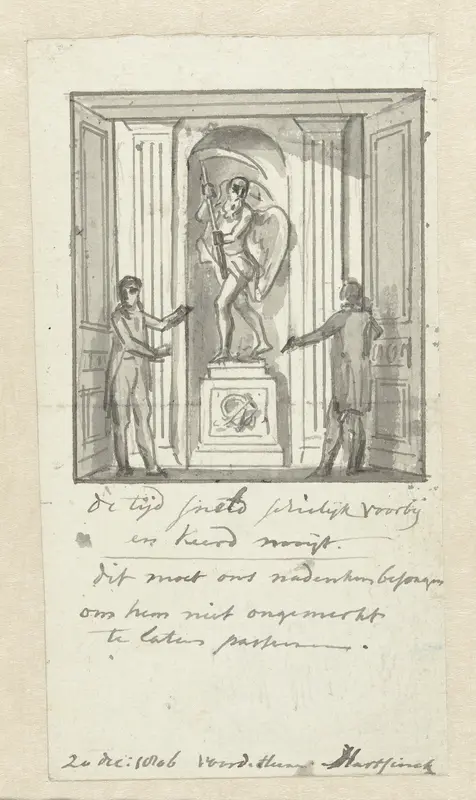 de tijd sneld schielijk voorbij
en keerd nooijt.
dit moet ons nadenken
om hem niet ongemerkt
te laten passeren.
20 dec: 1806 voor d Heer Hartsinck